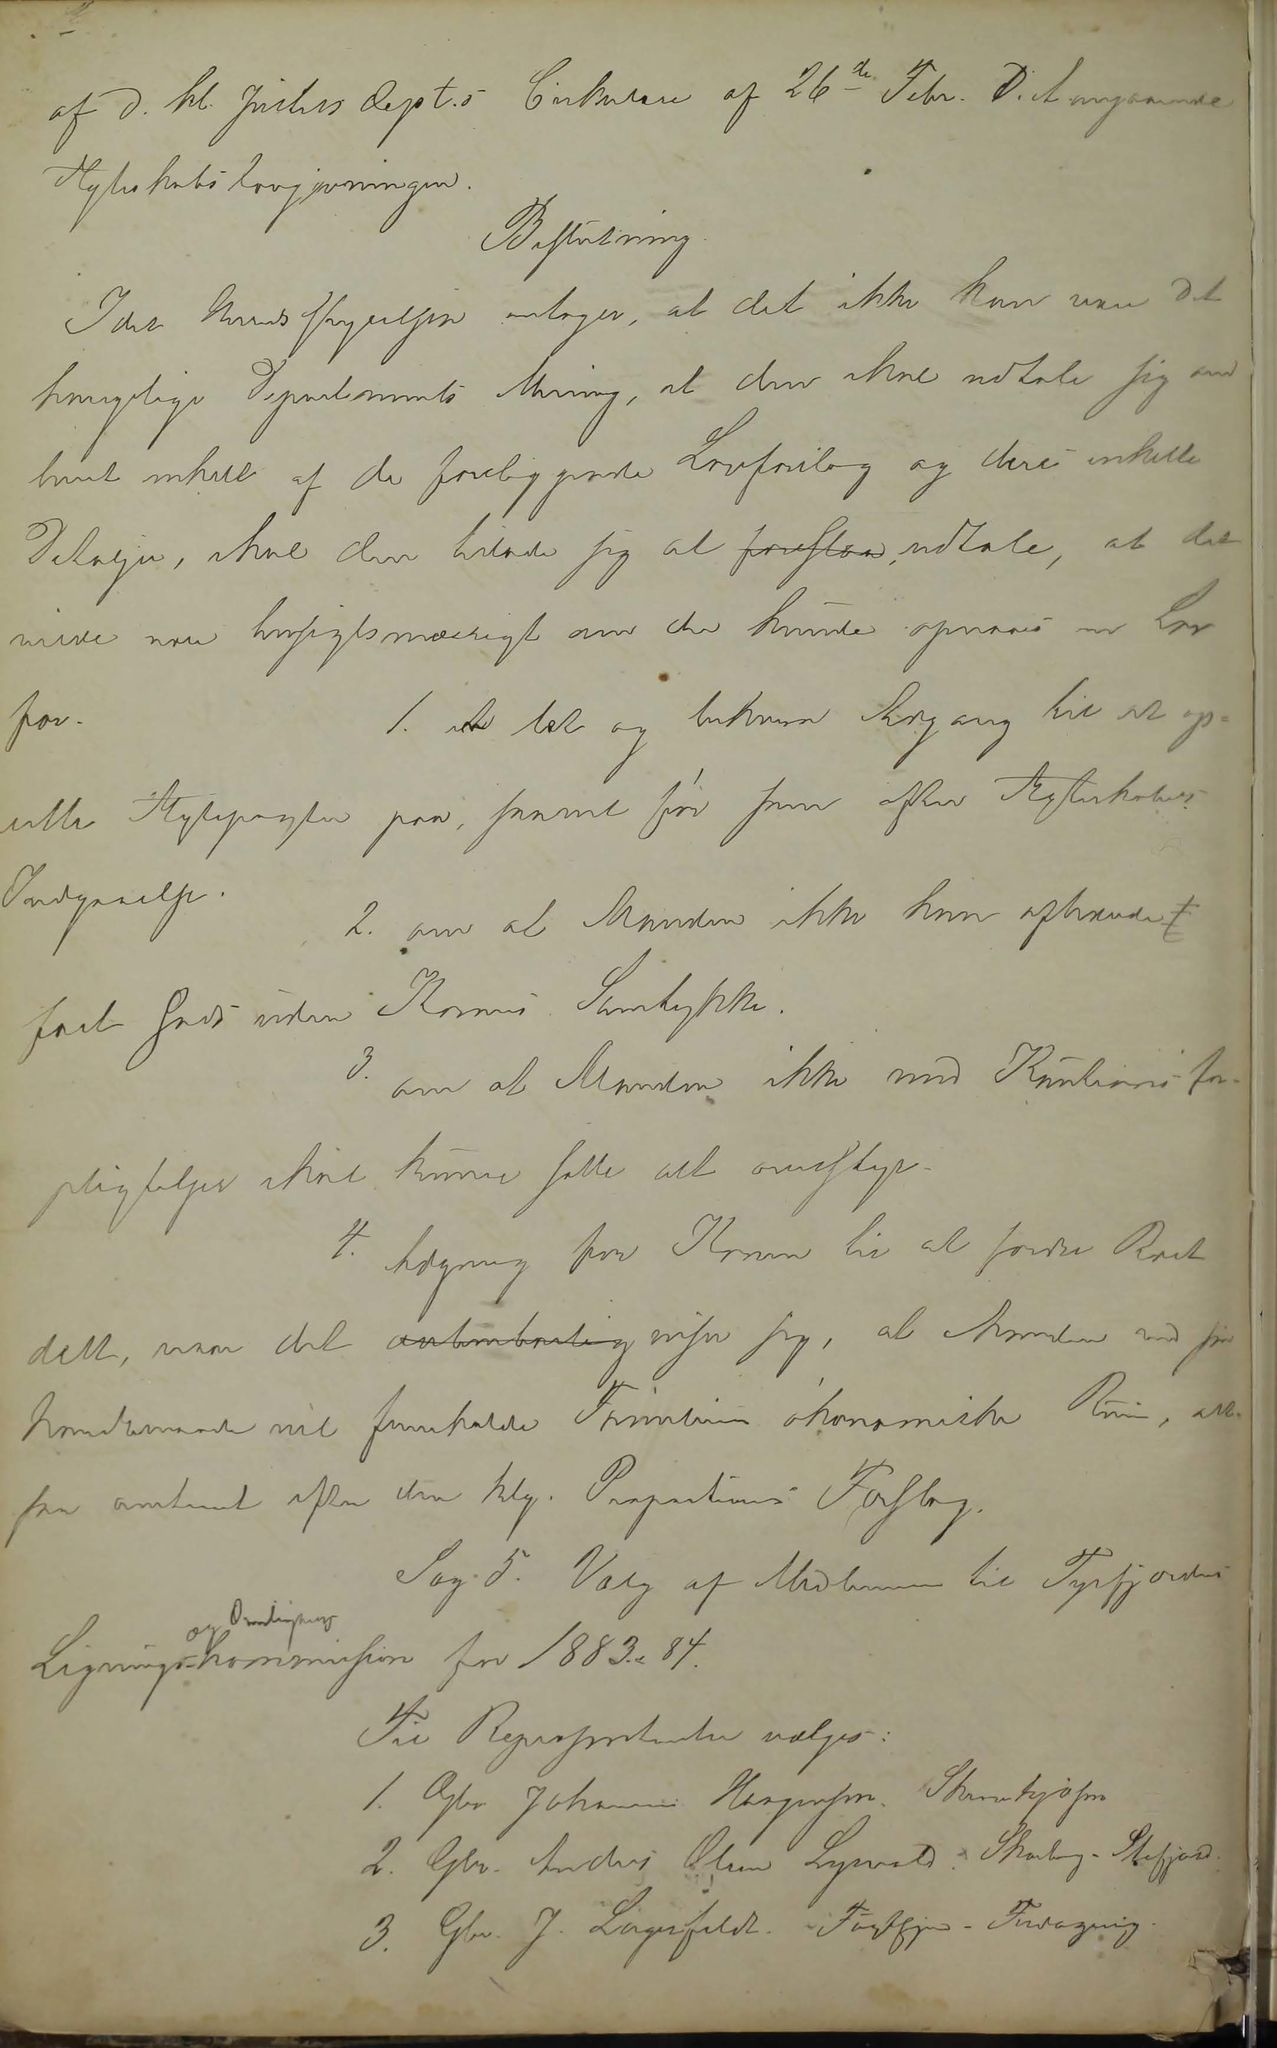 af d. kl. Justisdept.s Cirkulære af 26de Febr. D. A. angaaende
Ægteskabslovgivningen.
Beslutning.
Idet Herredsstyrelsen antager, at det ikke kan være det
kongelige Departements Mening, at den skal udtale sig om
hvert enkelt af de foreliggende Lovforslag og deres enkelte
Detaljer, skal den tillade sig at foreslaa udtale, at det
vilde være hensigtsmæssigt om der kunde opnaaes en Lov
for.
1. let og bekvem Adgang til at op-
rette Ægtepagter paa, saavel før som efter Ægteskabets
Indgaaelse.
2. om at Manden ikke kan afhænde
fast Gods uden Konens Samtykke.
3. om at Manden ikke med Kautionsfor-
pligtelser skal kunne sætte alt overstyr.
4. Adgang for Konen til at fordre Boet
delt, naar det viser sig, at Manden ved sin
Handlemaade vil fremkalde Familiens økonomiske Ruin, alt
saa omtrent efter den klg. Propositions Forslag.
Sag 5. Valg af Medlemmer til Tysfjordens
og Overligning
Ligningskommission for 1883-84.
Til Repræsentanter vælges:
1. Gbr. Johannes Skarberg
2. Gbr. Anders Olsen - Stefjord.
3. Gbr. J. Lagerfeldt.